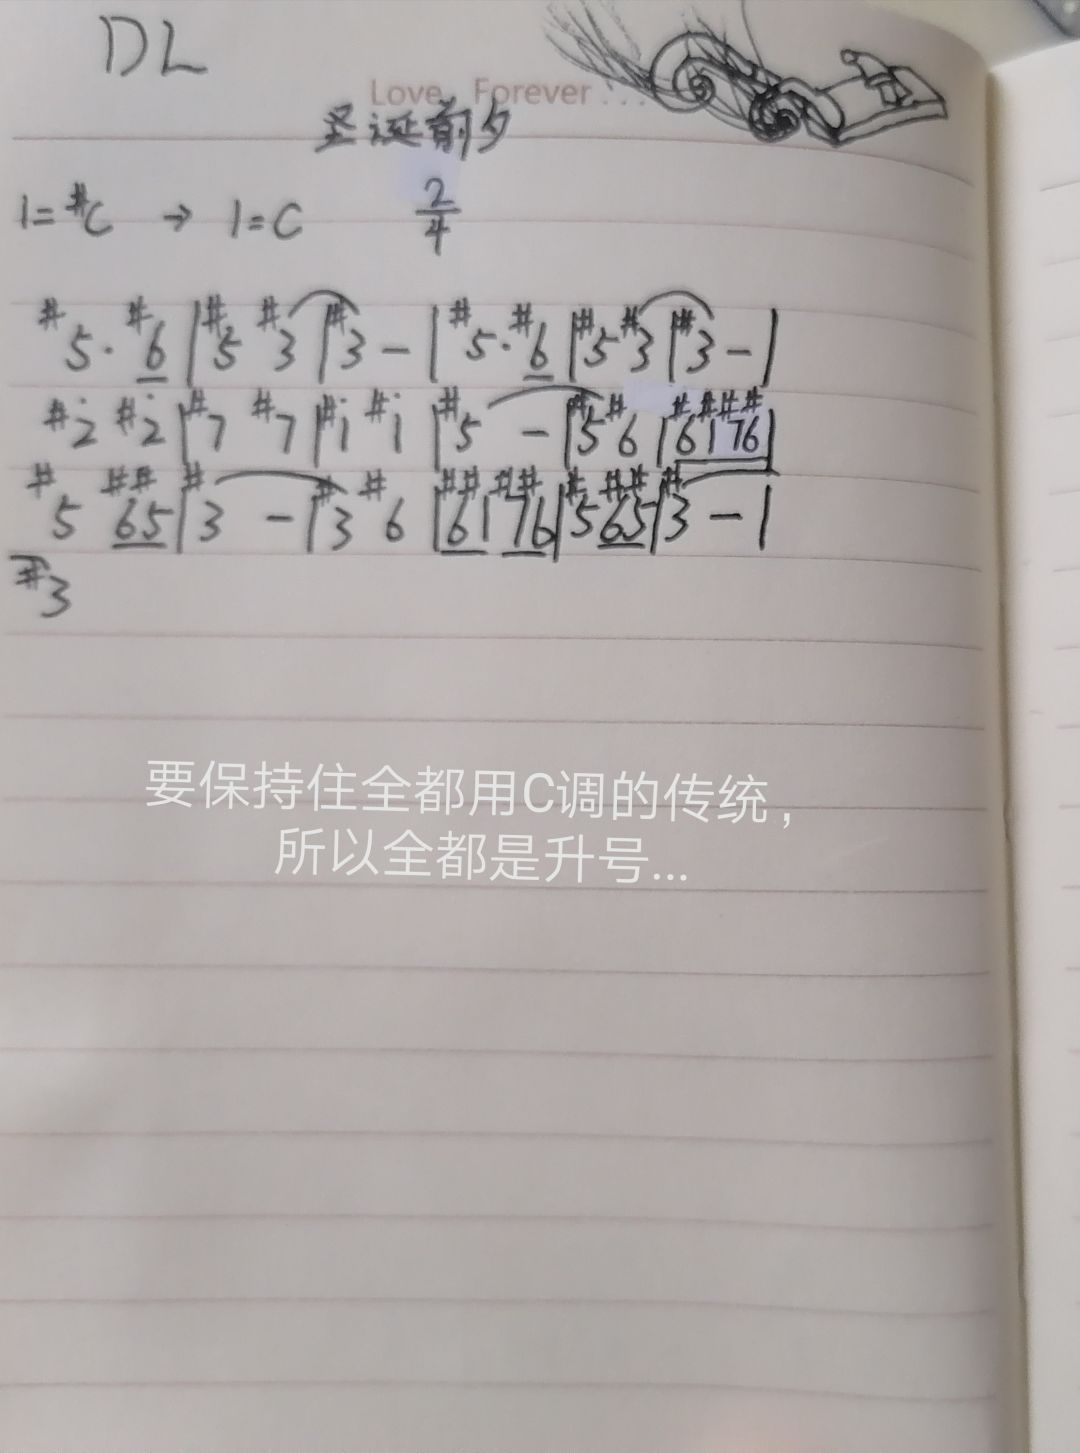 DL
Love Forever ...
圣诞前夕
1=#C → 1=C 2/4
#5· #6 | #5 #3 | #3 - | #5· #6 | #5 #3 | #3 - |
#2̇ #2̇ | #7 #7 | #1̇ #1̇ | #5 - | #5 #6 | #6 #1 #7 #6 |
#5 #6 #5 | #3 - | #3 #6 | #6 #1 #7 #6 | #5 #6 #5 | #3 - |
#3
要保持住全都用C调的传统，
所以全都是升号...